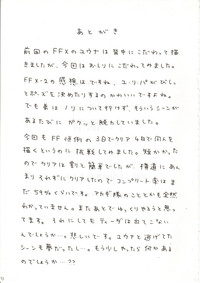 あとがき
前回のFFXのユウナは背中にこだわって描
きましたが、今回はおしりにこだわってみました。
FFX-2の感想はですね、ユ・リ・パがびしっ
とポーズを決めたりするのがかわいいですよね。
でも実はノリについて行けず、もういうシーンが
あるたびに ガクッと脱力していました。
今回も FF恒例の 3日でクリア 4日で同人を
描くというのに 挑戦してみました。短かっ
たのでクリアは割と簡単でしたが、横道にあん
まりそれずにクリアしたのでコンプリート率は ま
だ59%くらいです。アカギ隊のこととかも全然
わかっていません。またあとでゆっくりやろうと思
てます。それにしてもティーダは出てこない
んでしょうか…。悲しいです。ユウナと逃げてた
シーンも夢だったし…。もう少しやったら何かある
のでしょうか…??